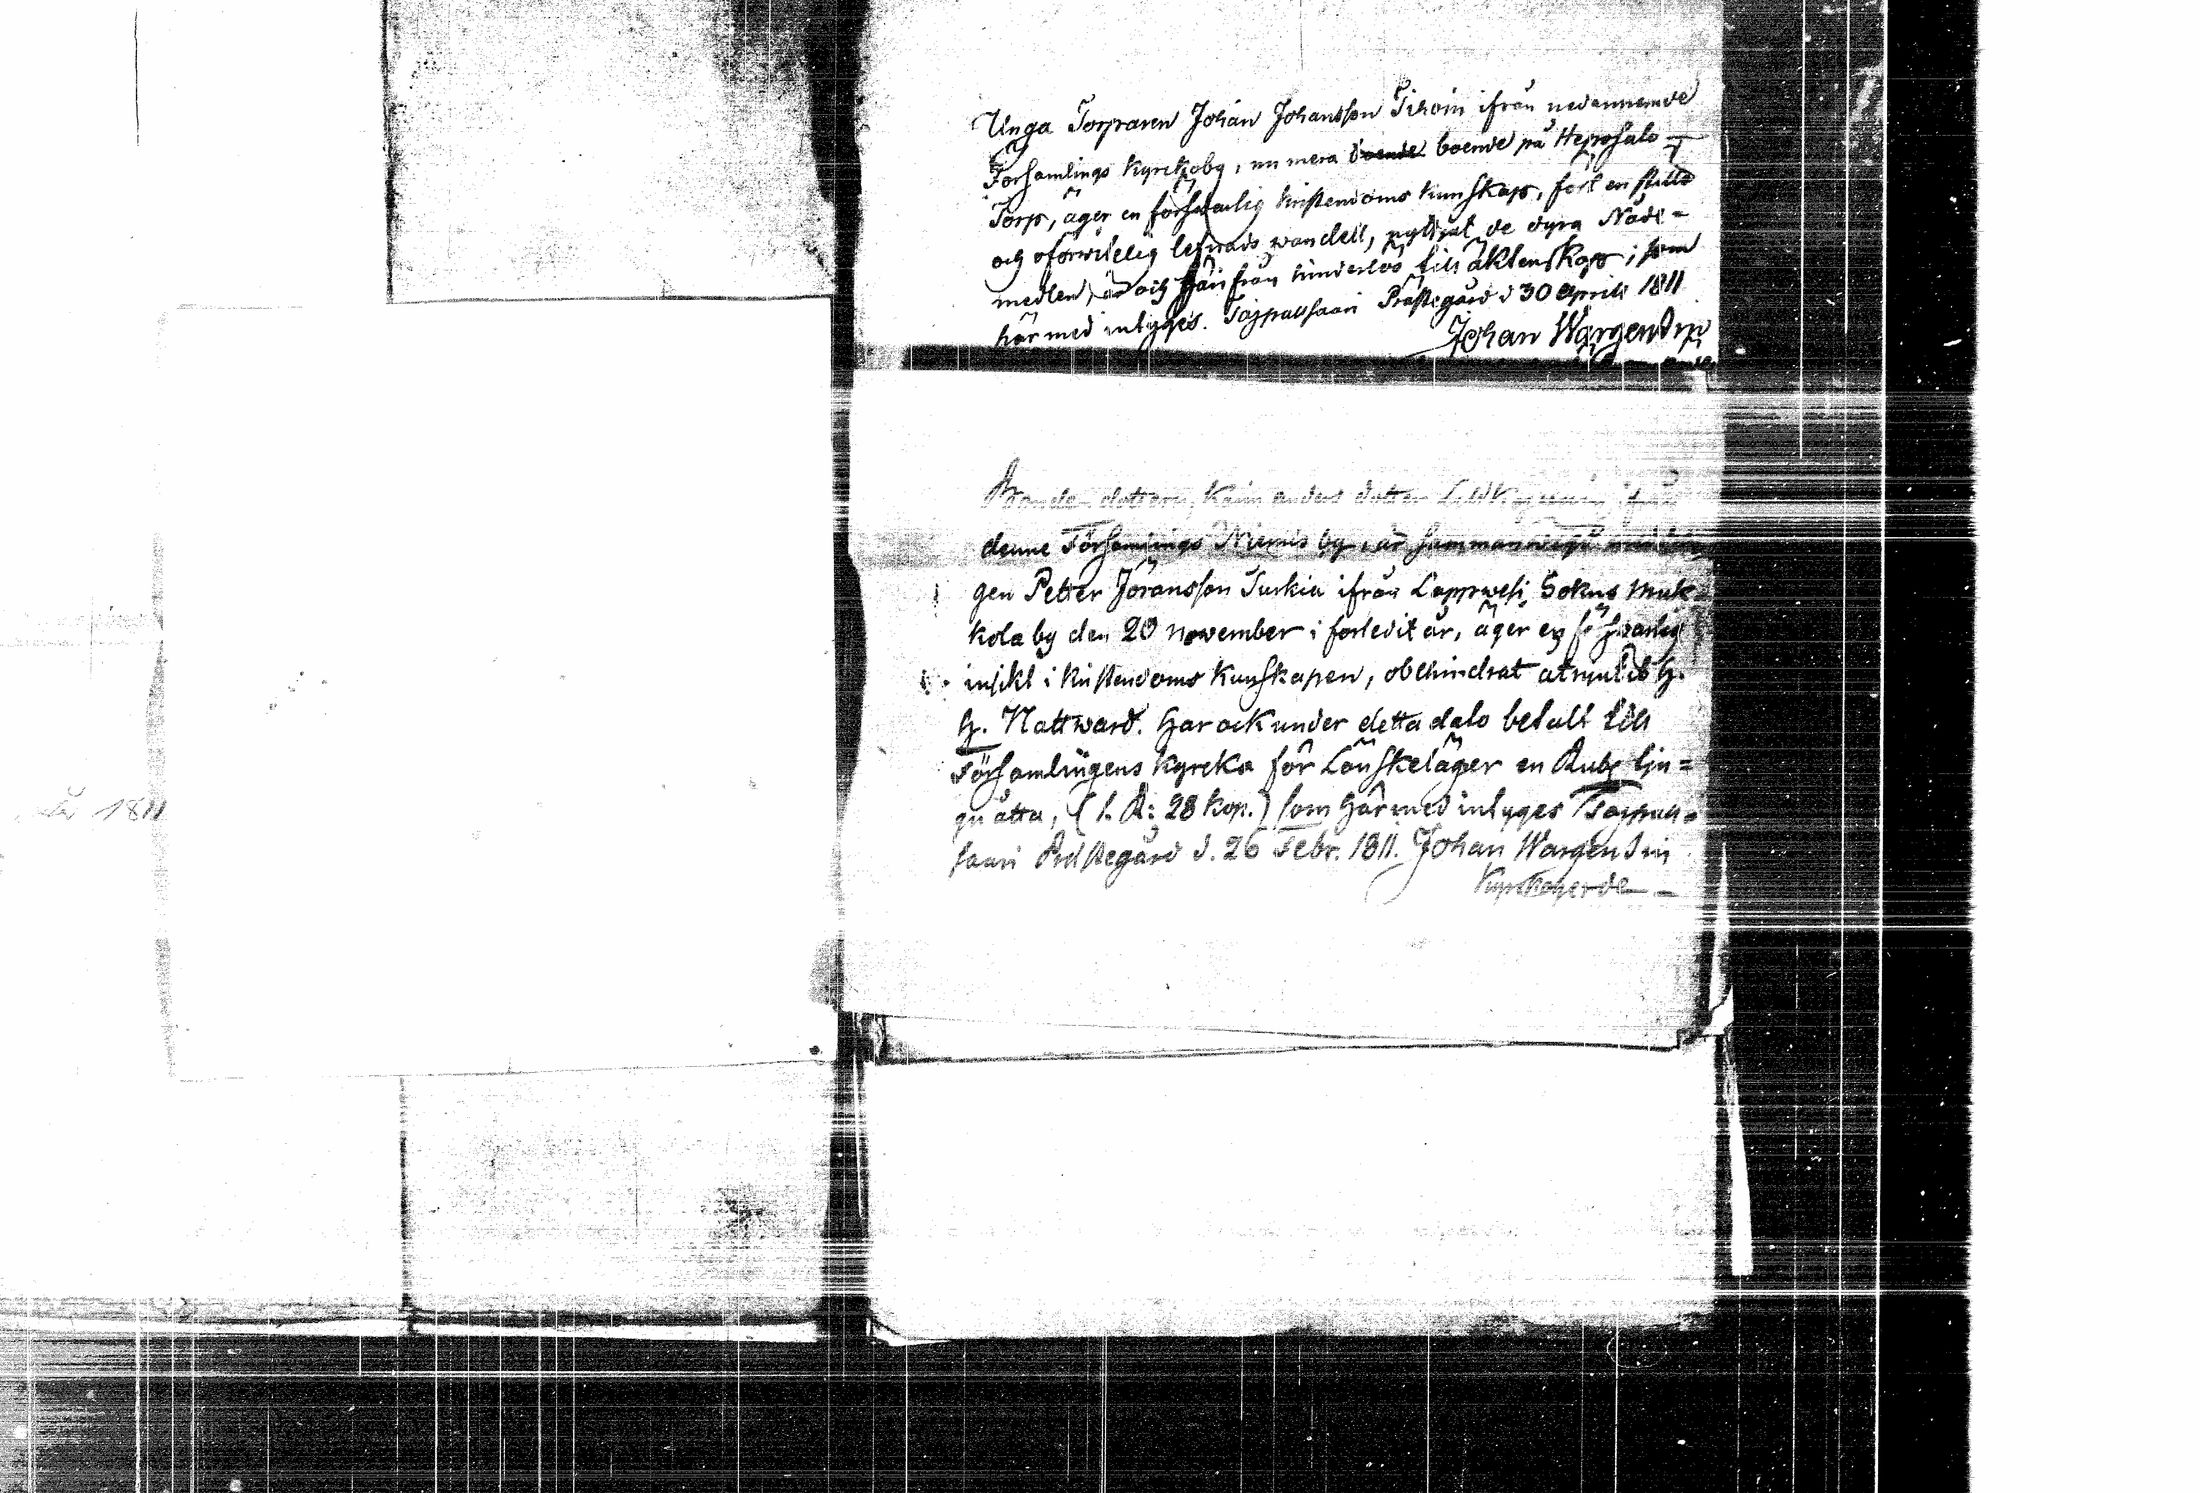 Unga Torparen Johan Johansson Tihoin ifrån nedannemde
Församlings Kyrckoby, nu mera boende boende på Heposalo
Torp, äger en försvarlig kristendoms kunskap, fört en stilla
och oförvitelig lefnads wandell, nyttjat de dyra Nåde-
medlen, är och härifrån hinderlös till äktenskap; som
här med intyges. Taipalsaari Prästegård d 30 April 1811
Johan Wargentin
Bonde dottern, Karin anders dotter ifrån
denne Församlings Niemis by, är sammanvigd med
gen Petter Jöransson Turkia ifrån Lappwesi Sokns Muk-
kola by den 20 november i förledit år, äger en försvarlig
insikt i kristendoms kunskapen, obehindrat at niutit h.
h. Nattward. har ock under detta dato betalt till
Församlingens kyrcka för Länskeläger en Rub. tju-
gu åtta, (1. R: 28 kop.) som härmed intyges Taipal-
saari Prästegård d. 26 Febr. 1811. Johan Wargentin
Kyrckoherde
1811